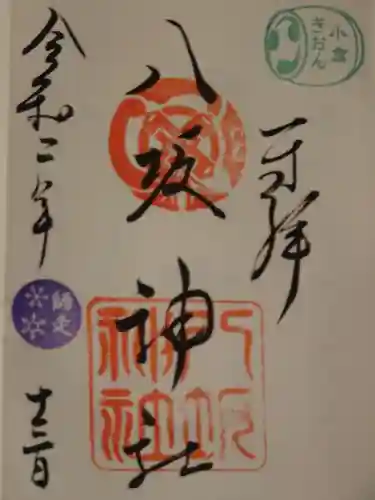 小倉
ぎおん
奉拝
八坂神社
八坂
神社
令和二年
師走
十二月